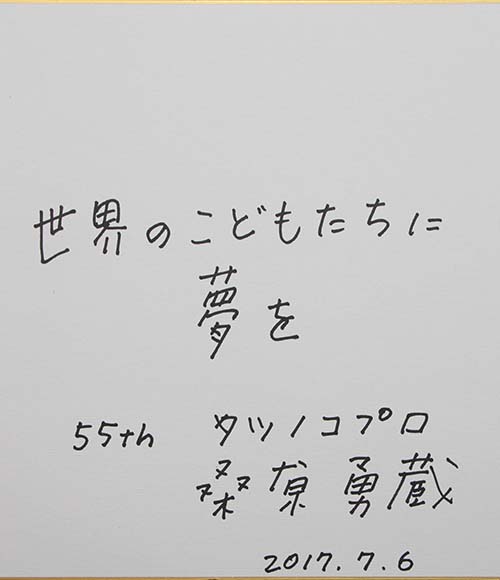 世界のこどもたちに
夢を
55th タツノコプロ
桑原勇蔵
2017.7.6